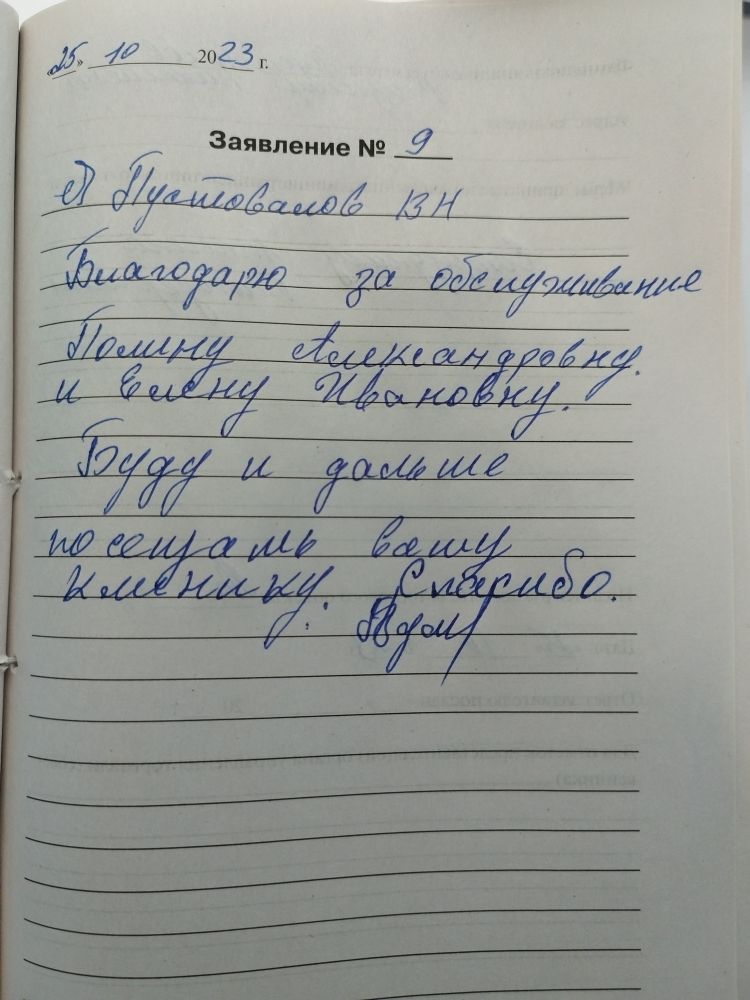 «25» 10 2023 г.
Заявление № 9
Я Пустовалов ВН
Благодарю за обслуживание
Полину Александровну.
и Елену Ивановну.
Буду и дальше
посещать вашу
клинику. Спасибо.